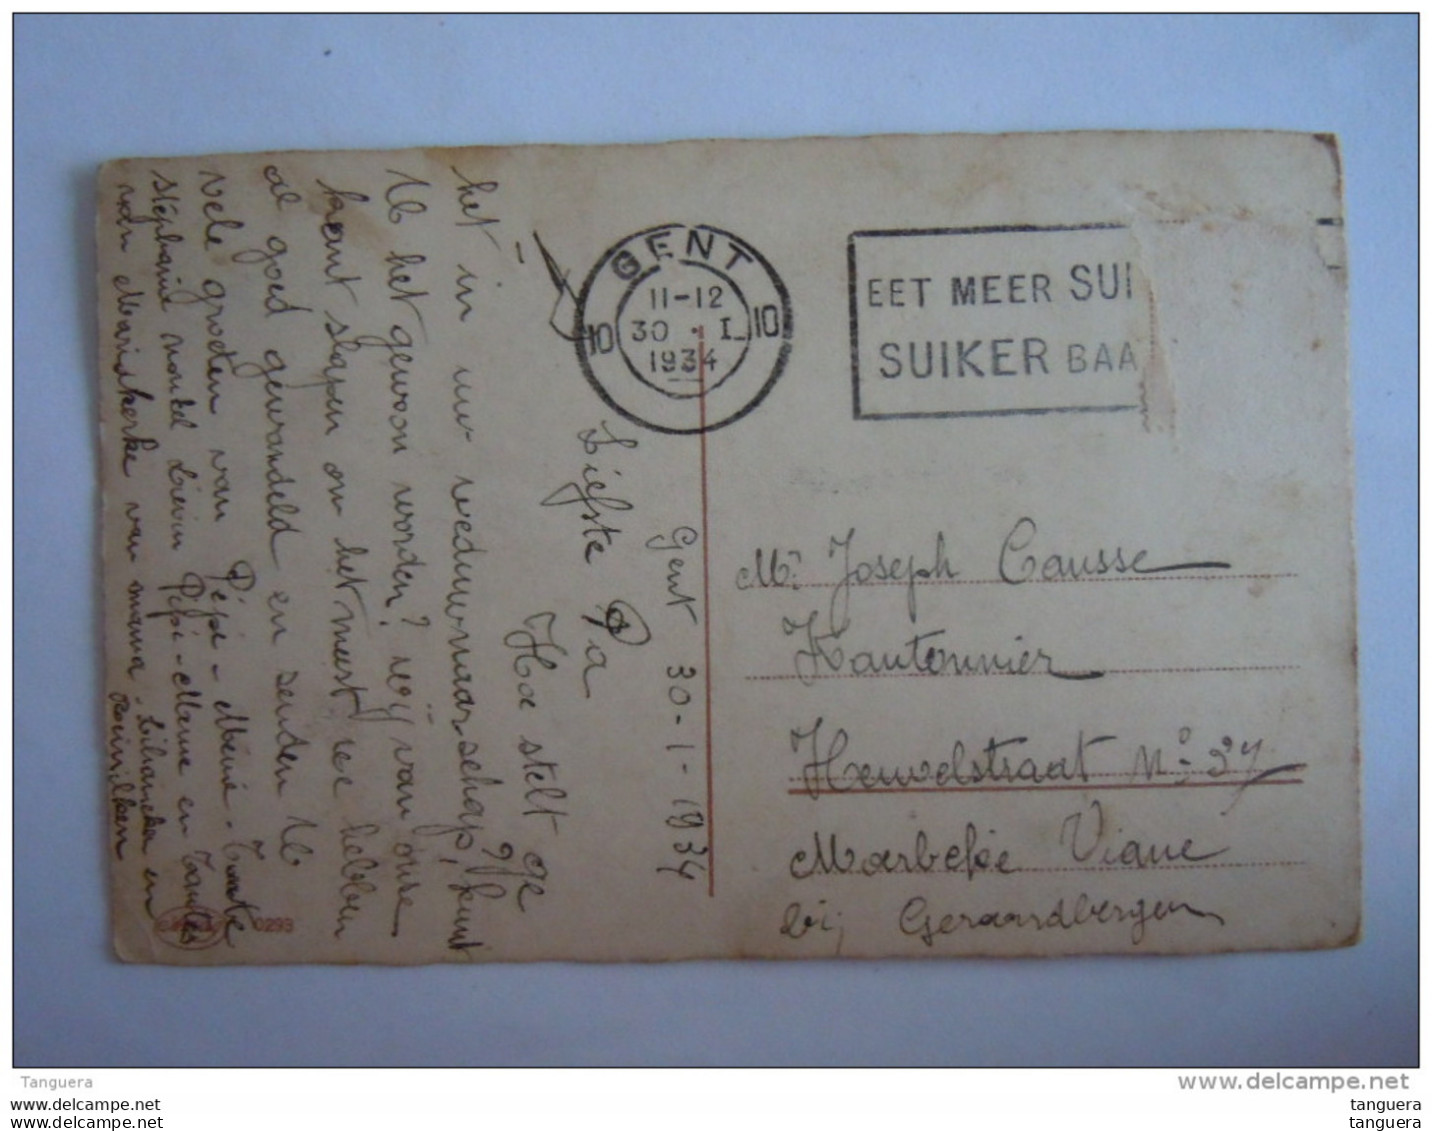 GENT
11-12
30 · I
1934
10 10
EET MEER SUI
SUIKER BAA
Gent 30-1-1934
Liefste Pa
Hoe stelt ge
het in uw weduwnaarschap, kunt
U het gewoon worden? wij van onze
kant slapen en het meest we hebben
al goed gewandeld en zenden U
vele groeten van Pépé - Mémé - Tante
Stéphanie nonkel Lievin Pépé - Meme en Tantes
van Mariakerke van mama - en
Mr. Joseph Causse
Kantonnier
Heuvelstraat No 27
Marbeke Viane
bij Geraardbergen
0293
Tanguera
www.delcampe.net
www.delcampe.net
www.delcampe.net
tanguera
tanguera